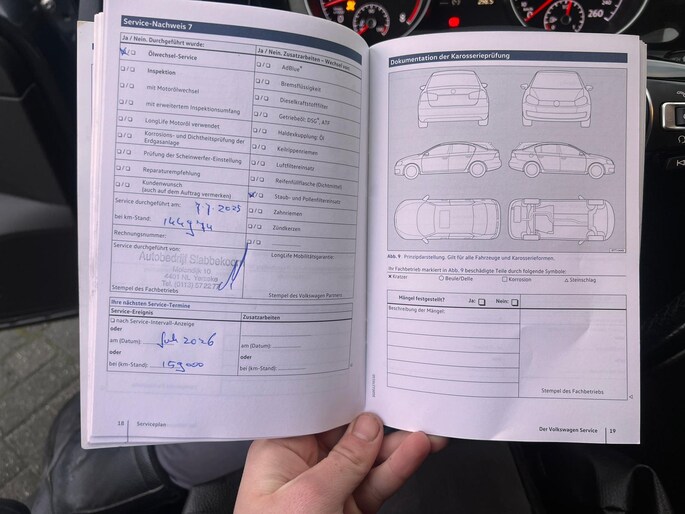 Service-Nachweis 7
Ja / Nein. Durchgeführt wurde:
Ölwechsel-Service
Inspektion
mit Motorölwechsel
mit erweitertem Inspektionsumfang
LongLife Motoröl verwendet
Korrosions- und Dichtheitsprüfung der
Erdgasanlage
Prüfung der Scheinwerfer-Einstellung
Reparaturempfehlung
Kundenwunsch
(auch auf dem Auftrag vermerken)
Service durchgeführt am: 7.7.2025
bei km-Stand: 144974
Rechnungsnummer:
Service durchgeführt von:
Autobedrijf Slabbekoorn
4401 NL Yerseke
Stempel des Fachbetriebs
Ja / Nein. Zusatzarbeiten – Wechsel von:
AdBlue®
Bremsflüssigkeit
Dieselkraftstofffilter
Getriebeöl: DSG®, ATF
Haldexkupplung: Öl
Keilrippenriemen
Luftfiltereinsatz
Reifenfüllflasche (Dichtmittel)
Staub- und Pollenfiltereinsatz
Zahnriemen
Zündkerzen
LongLife Mobilitätsgarantie
Stempel des Volkswagen Partners
Ihre nächsten Service-Termine
Service-Ereignis
Zusatzarbeiten
nach Service-Intervall-Anzeige
oder
am (Datum): Juli 2026
oder
bei (km-Stand): 159000
am (Datum):
oder
bei (km-Stand):
18 Serviceplan
Dokumentation der Karosserieprüfung
Abb. 9 Prinzipdarstellung. Gilt für alle Fahrzeuge und Karosserieformen.
Ihr Fachbetrieb markiert in Abb. 9 beschädigte Teile durch folgende Symbole:
× Kratzer ○ Beule/Delle □ Korrosion △ Steinschlag
Mängel festgestellt? Ja: Nein:
Beschreibung der Mängel:
Stempel des Fachbetriebs
Der Volkswagen Service 19
8
260